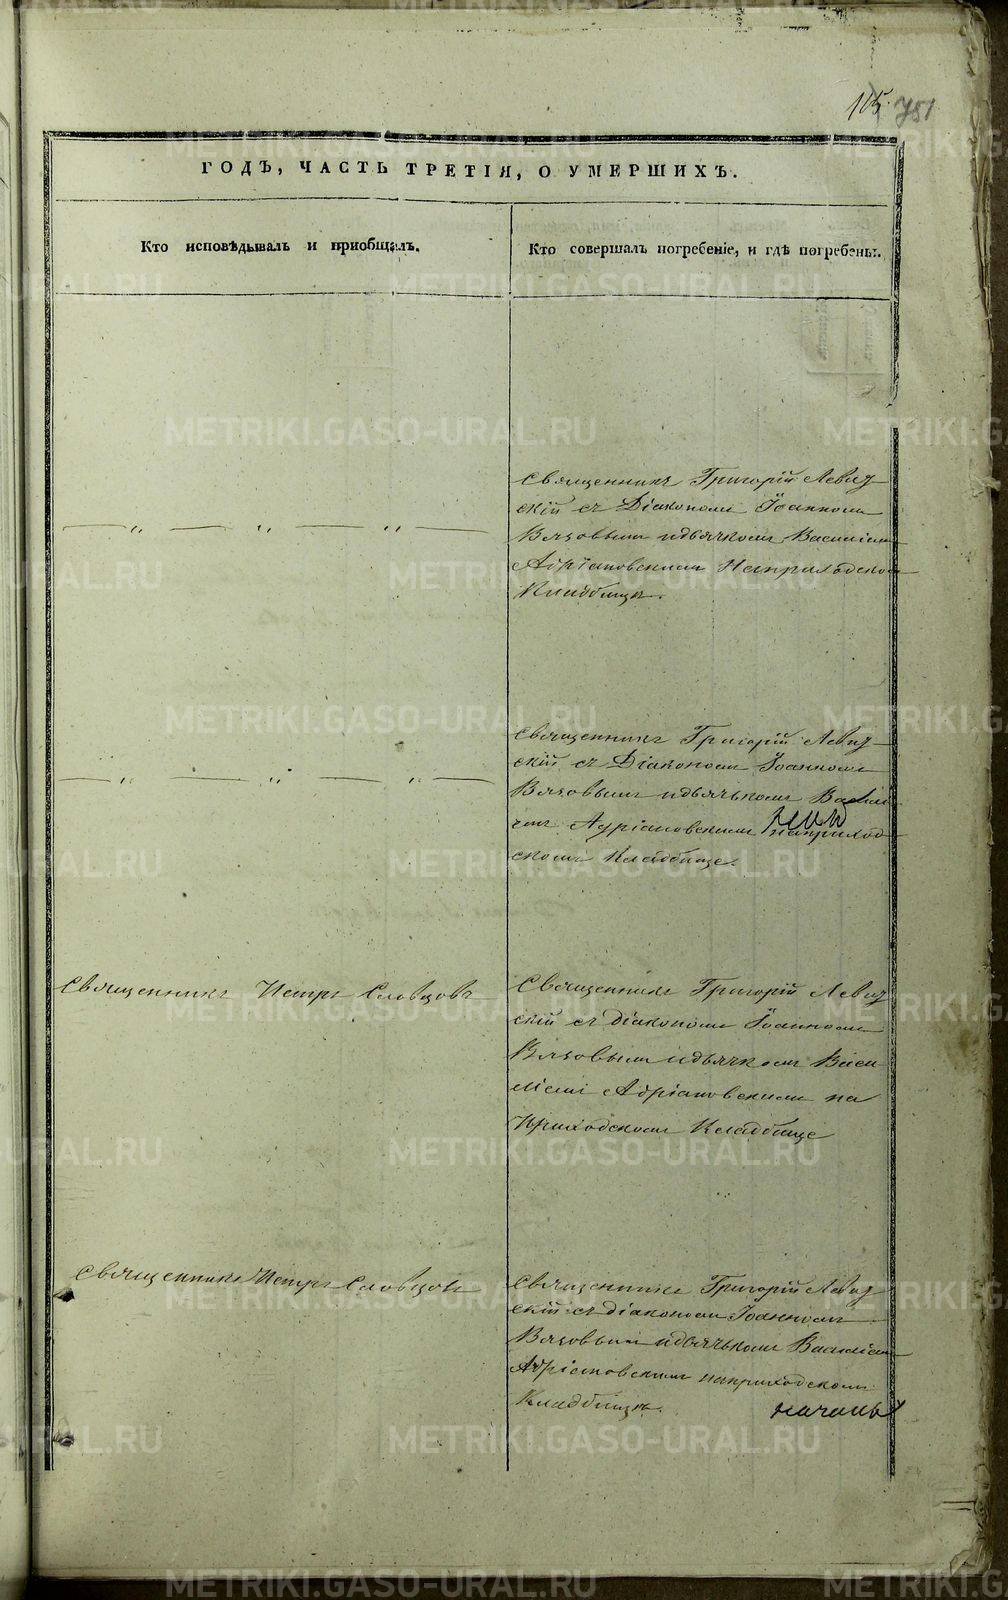 105. 751
ГОДЪ, ЧАСТЬ ТРЕТІЯ, О УМЕРШИХЪ.
Кто исповѣдывалъ и пріобщалъ.
Кто совершалъ погребеніе, и гдѣ погребены.
Священникъ Григорій Левиц
скій съ Діакономъ Іоанномъ
Вязовымъ и дьячкомъ Василіем
Адріановскимъ На приходском
Кладбищѣ.
Священникъ Григорій Левиц
скій съ Діакономъ Іоанномъ
Вязовымъ и дьячькомъ Васил
емъ Адріановскимъ на приход
скомъ Кладбище.
Священникъ Петръ Словцовъ
Священникъ Григорій Левиц
скій съ діакономъ Іоанномъ
Вязовымъ и дьячкомъ Васи
ліемъ Адріановскимъ на
Приходскомъ Кладбище
Священникъ Петръ Словцовъ
Священникъ Григорій Левиц
скій съ діакономъ Іоанномъ
Вязовымъ и дьячькомъ Василіем
Адріановскимъ на приходскомъ
Кладбищѣ.
METRIKI.GASO-URAL.RU